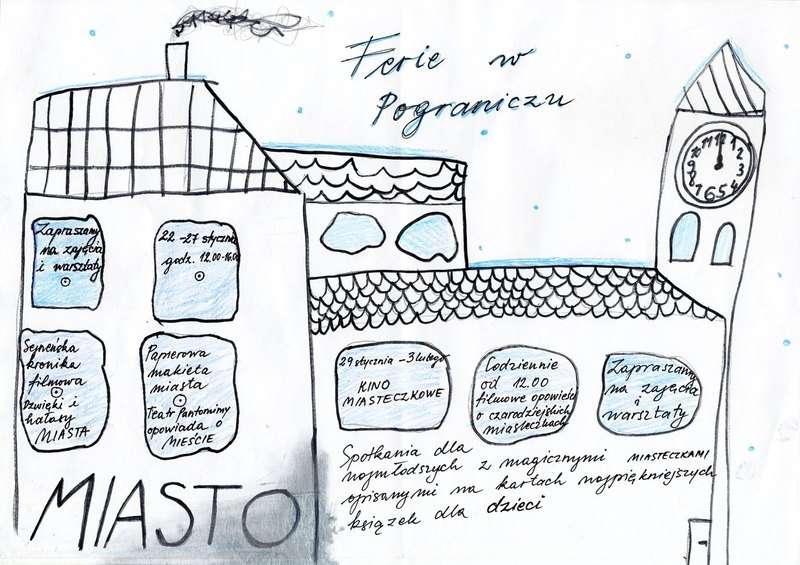 Ferie w
Pograniczu
12
1
2
3
4
5
6
7
8
9
10
11
Zapraszamy
na zajęcia
i warsztaty
22-27 stycznia
godz. 12.00-16.00
Sejneńska
kronika
filmowa
Dźwięki i
hałasy
MIASTA
Papierowa
makieta
miasta
Teatr Pantomimy
opowiada o
MIEŚCIE
29 stycznia - 3 lutego
KINO
MIASTECZKOWE
Codziennie
od 12.00
filmowe opowieści
o czarodziejskich
miasteczkach
Zapraszamy
na zajęcia
i
warsztaty
Spotkania dla
najmłodszych z magicznymi MIASTECZKAMI
opisanymi na kartach najpiękniejszych
książek dla dzieci
MIASTO